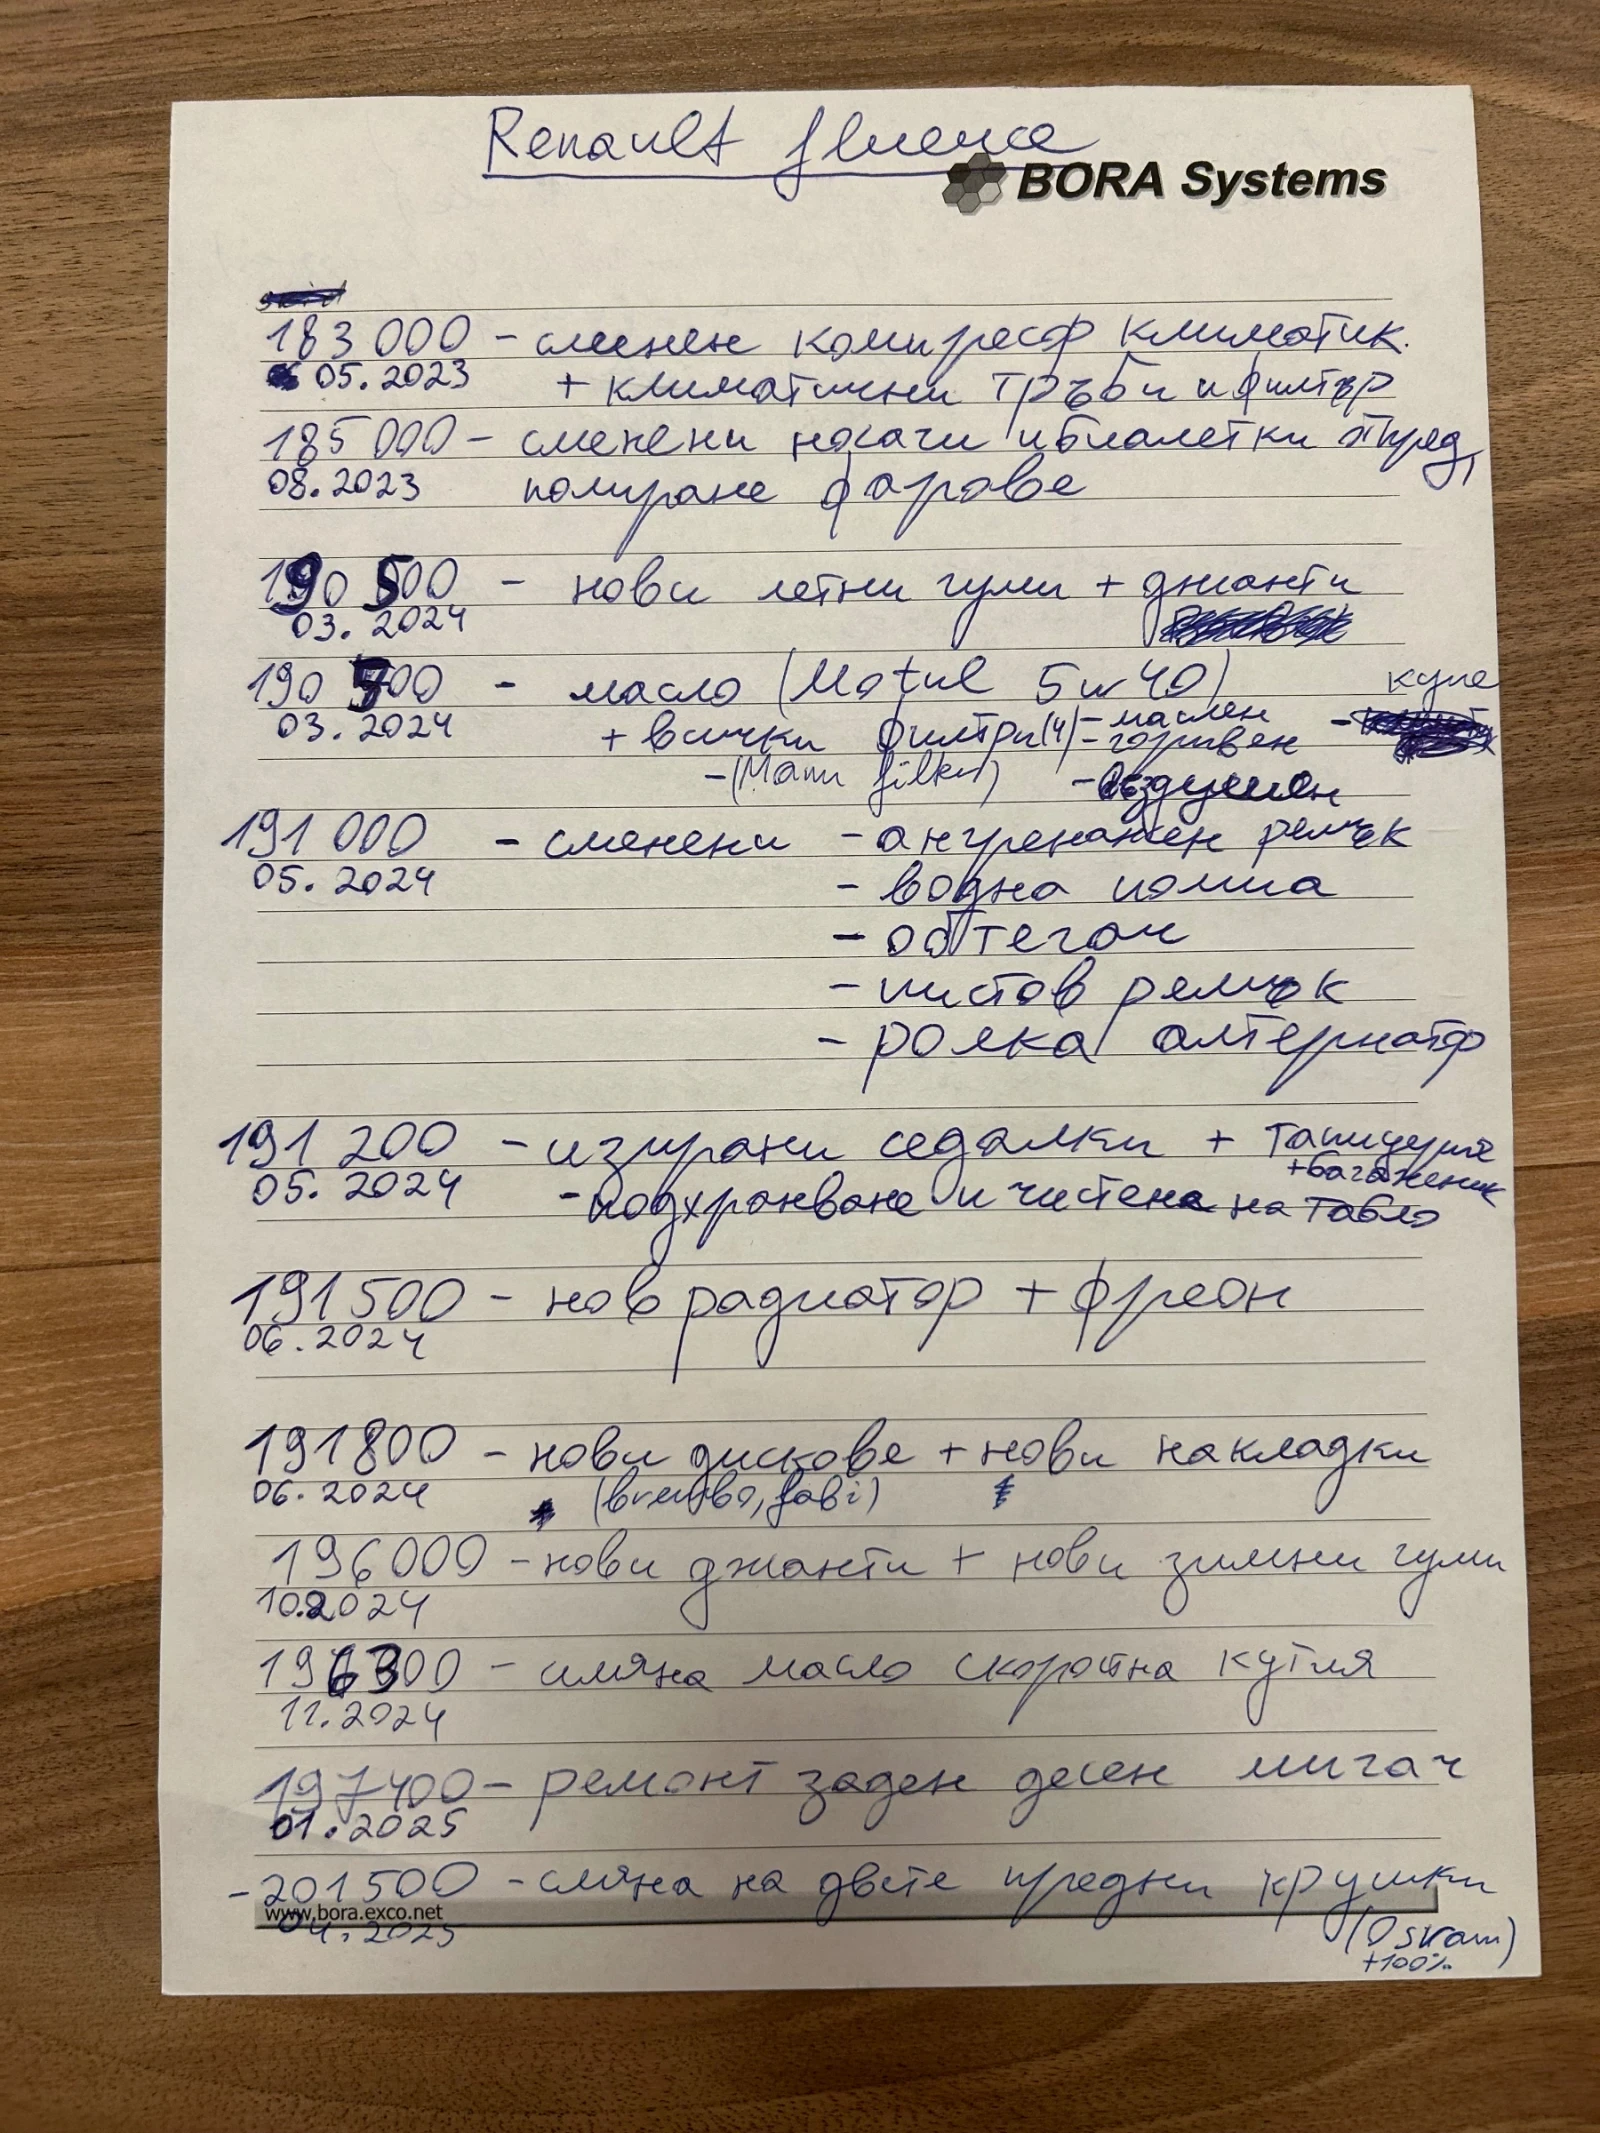 Renault fluence
BORA Systems
183 000 - сменен компресор климатик.
05.2023 + климатични тръби и филтър
185 000 - сменени носачи и биалетки отпред,
08.2023 полиране фарове
190 500 - нови летни гуми + джанти
03.2024
190 700 - масло (Motul 5w40) купе
03.2024 + всички филтри (4) - маслен -
- горивен
- (Mann filter) - въздушен
191 000 - сменени - ангренажен ремък
05.2024 - водна помпа
- обтегач
- пистов ремък
- ролка алтернатор
191 200 - изпрани седалки + тапицерии
+ багажник
05.2024 - подхранване и чистене на табло
191 500 - нов радиатор + фреон
06.2024
191 800 - нови дискове + нови накладки
06.2024 (brembo, fabi)
196 000 - нови джанти + нови зимни гуми
10.2024
196300 - смяна масло скоростна кутия
11.2024
197400 - ремонт заден десен мигач
01.2025
- 201500 - смяна на двете предни крушки
www.bora.exco.net
04.2025 (Osram)
+100%